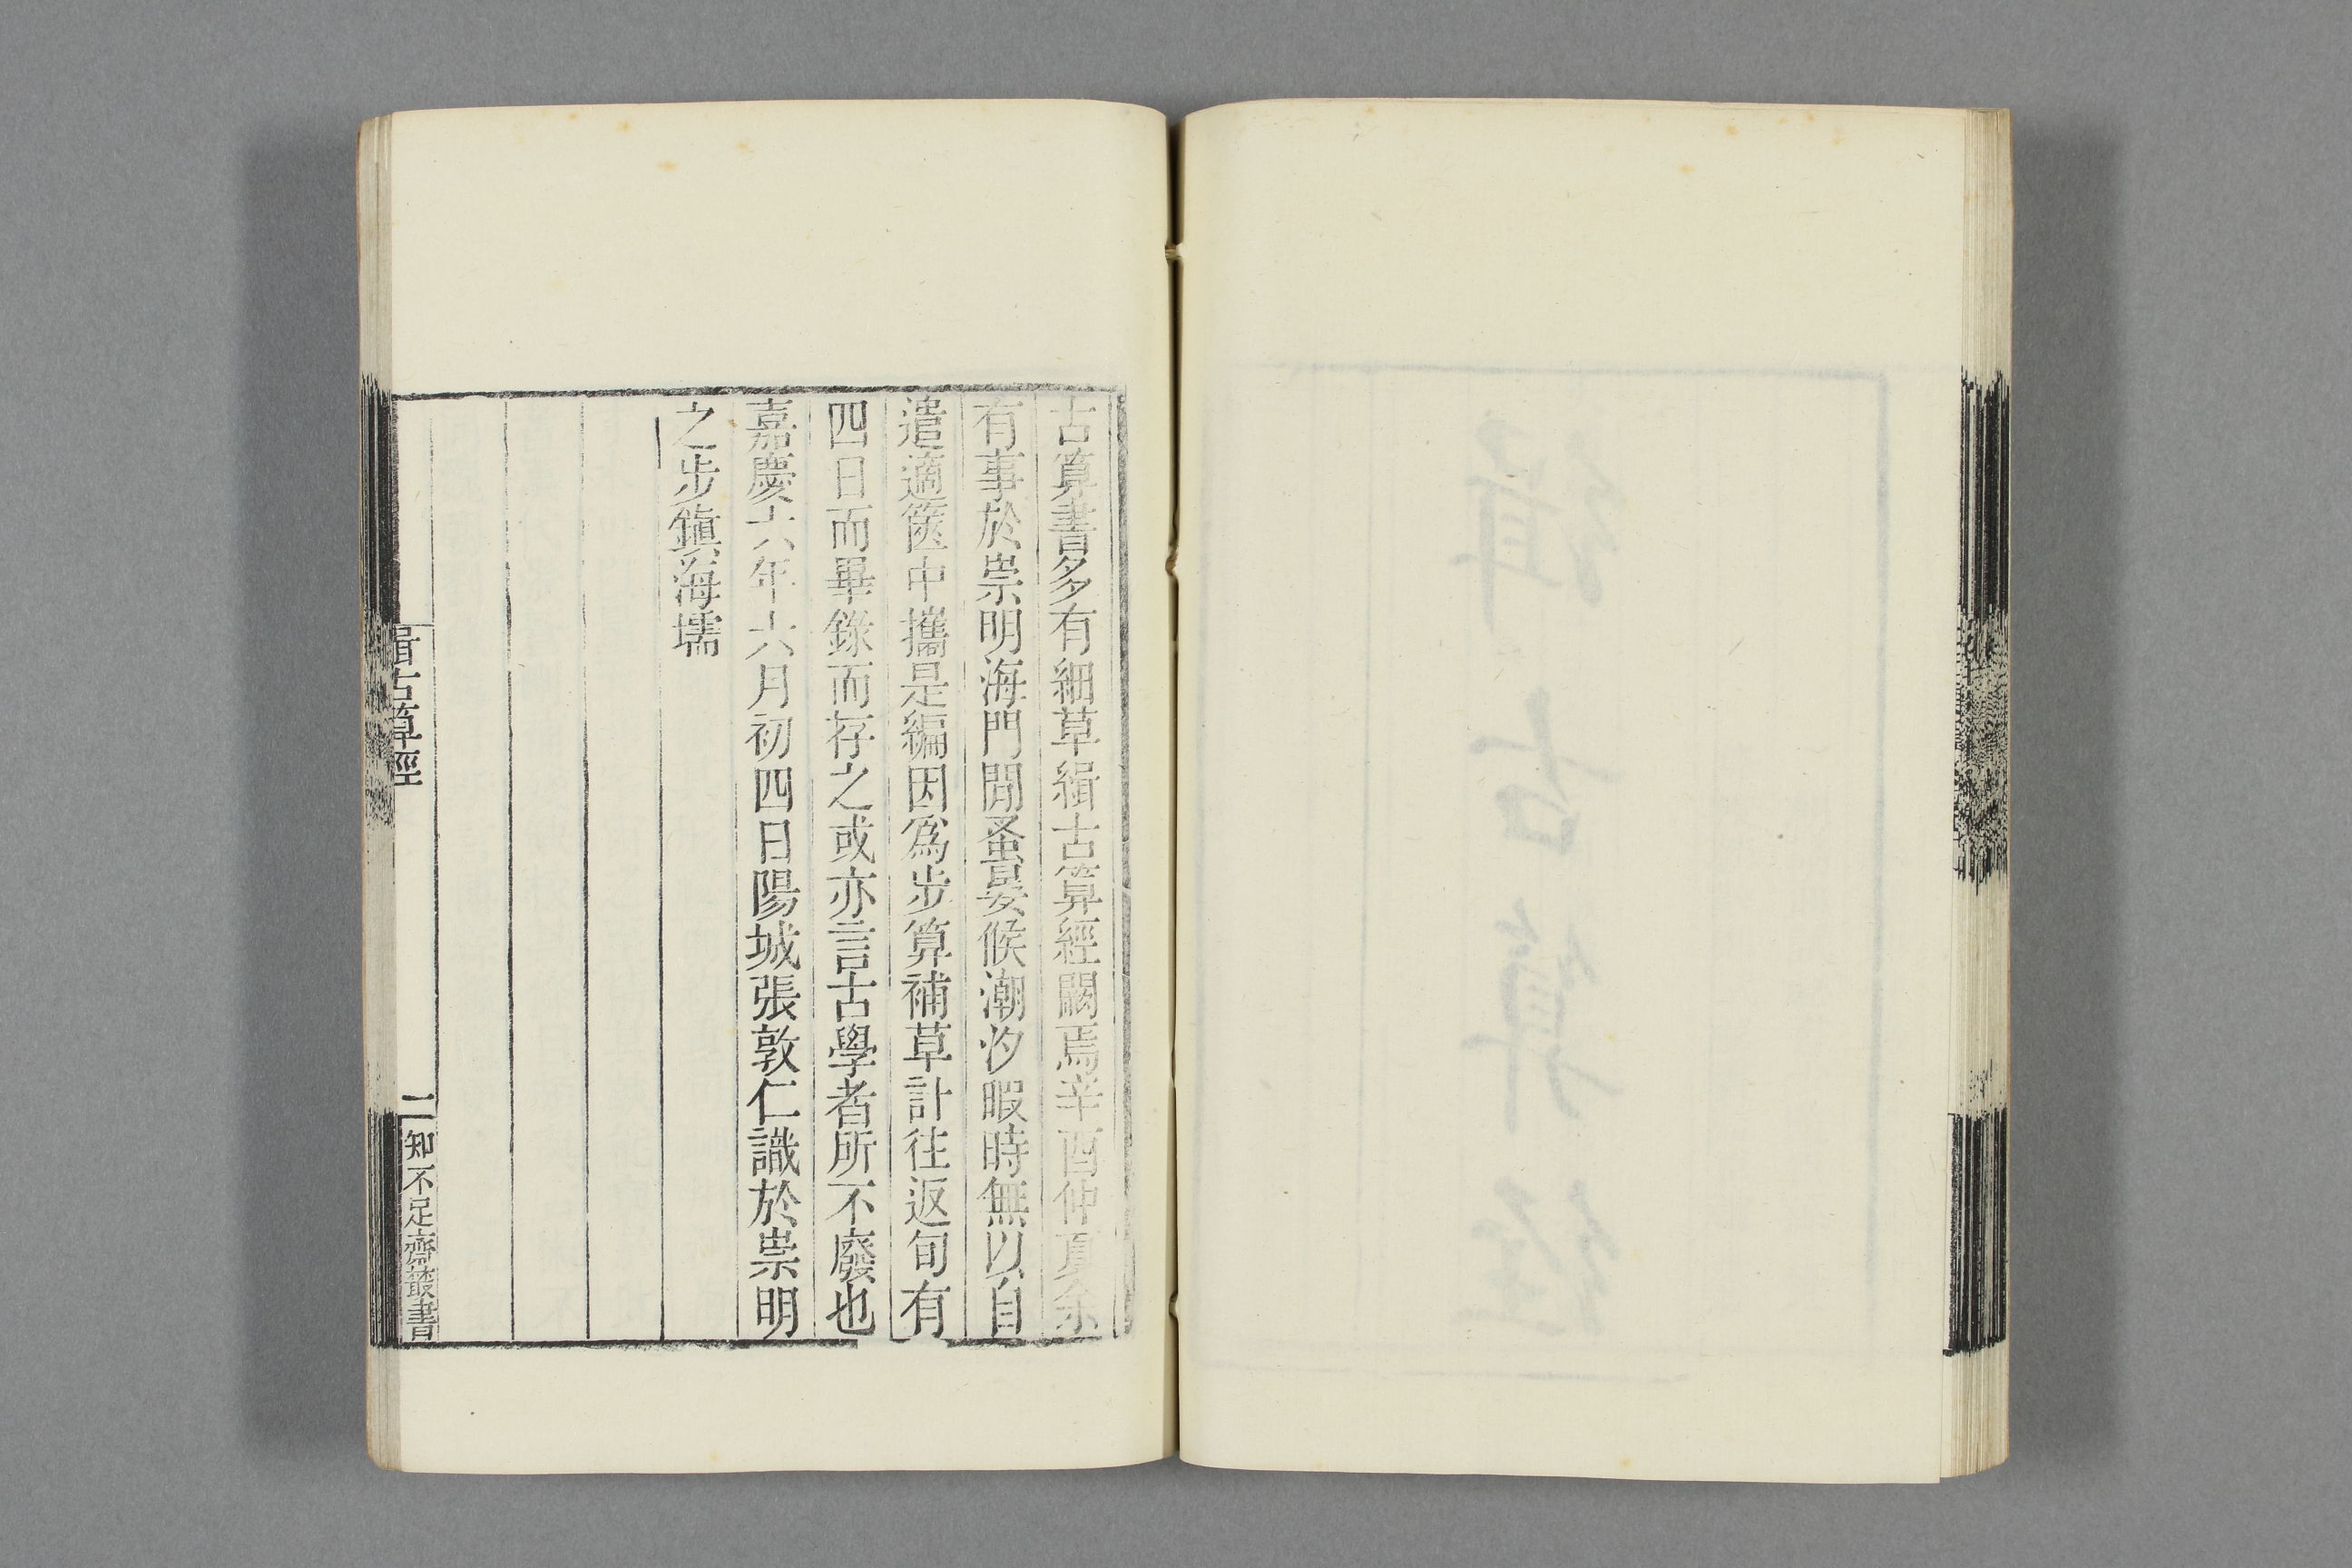 古算書多有細草緝古算經闕焉辛酉仲夏余
有事於崇明海門間蚤晏候潮汐暇時無以自
遣適篋中攜是編因爲步算補草計往返旬有
四日而畢錄而存之或亦言古學者所不廢也
嘉慶六年六月初四日陽城張敦仁識於崇明
之步鎭海壖
緝古算經
一
知不足齋叢書